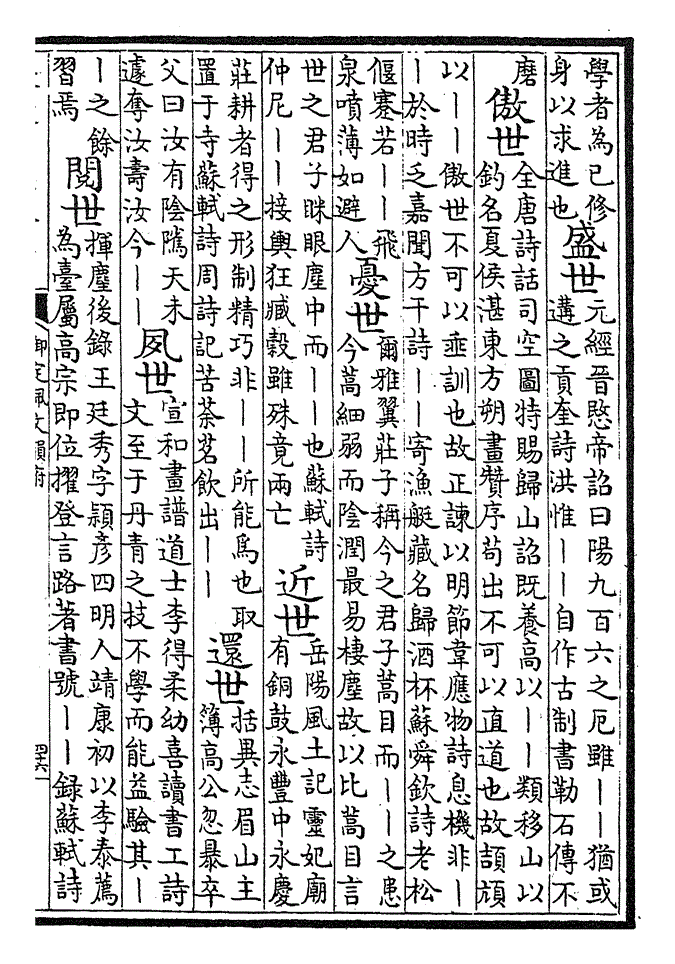 學者為己修
身以求進也
盛世
元經晉愍帝詔曰陽九百六之厄雖丨丨猶或
遘之貢奎詩洪惟丨丨自作古制書勒石傳不
磨
傲世
全唐詩話司空圖特賜歸山詔既養高以丨丨類移山以
釣名夏侯湛東方朔畫贊序苟出不可以直道也故頡頏
以丨丨傲世不可以垂訓也故正諫以明節韋應物詩息機非丨
丨於時乏嘉聞方干詩丨丨寄漁艇藏名歸酒杯蘇舜欽詩老松
偃蹇若丨丨飛
泉噴薄如避人
憂世
爾雅翼莊子稱今之君子蒿目而丨丨之患
今蒿細弱而陰潤最易棲塵故以比蒿目言
世之君子眯眼塵中而丨丨也蘇軾詩
仲尼丨丨接輿狂臧穀雖殊竟兩亡
近世
岳陽風土記靈妃廟
有銅鼓永豐中永慶
莊耕者得之形制精巧非丨丨所能為也取
置于寺蘇軾詩周詩記苦荼茗飲出丨丨
還世
括異志眉山主
簿高公忽暴卒
父曰汝有陰隲天未
遽奪汝壽汝今丨丨
夙世
宣和畫譜道士李得柔幼喜讀書工詩
文至于丹青之技不學而能益驗其丨
丨之餘
習焉
閱世
揮麈後錄王廷秀字穎彥四明人靖康初以李泰薦
為臺屬高宗即位擢登言路著書號丨丨錄蘇軾詩
御定佩文韻府